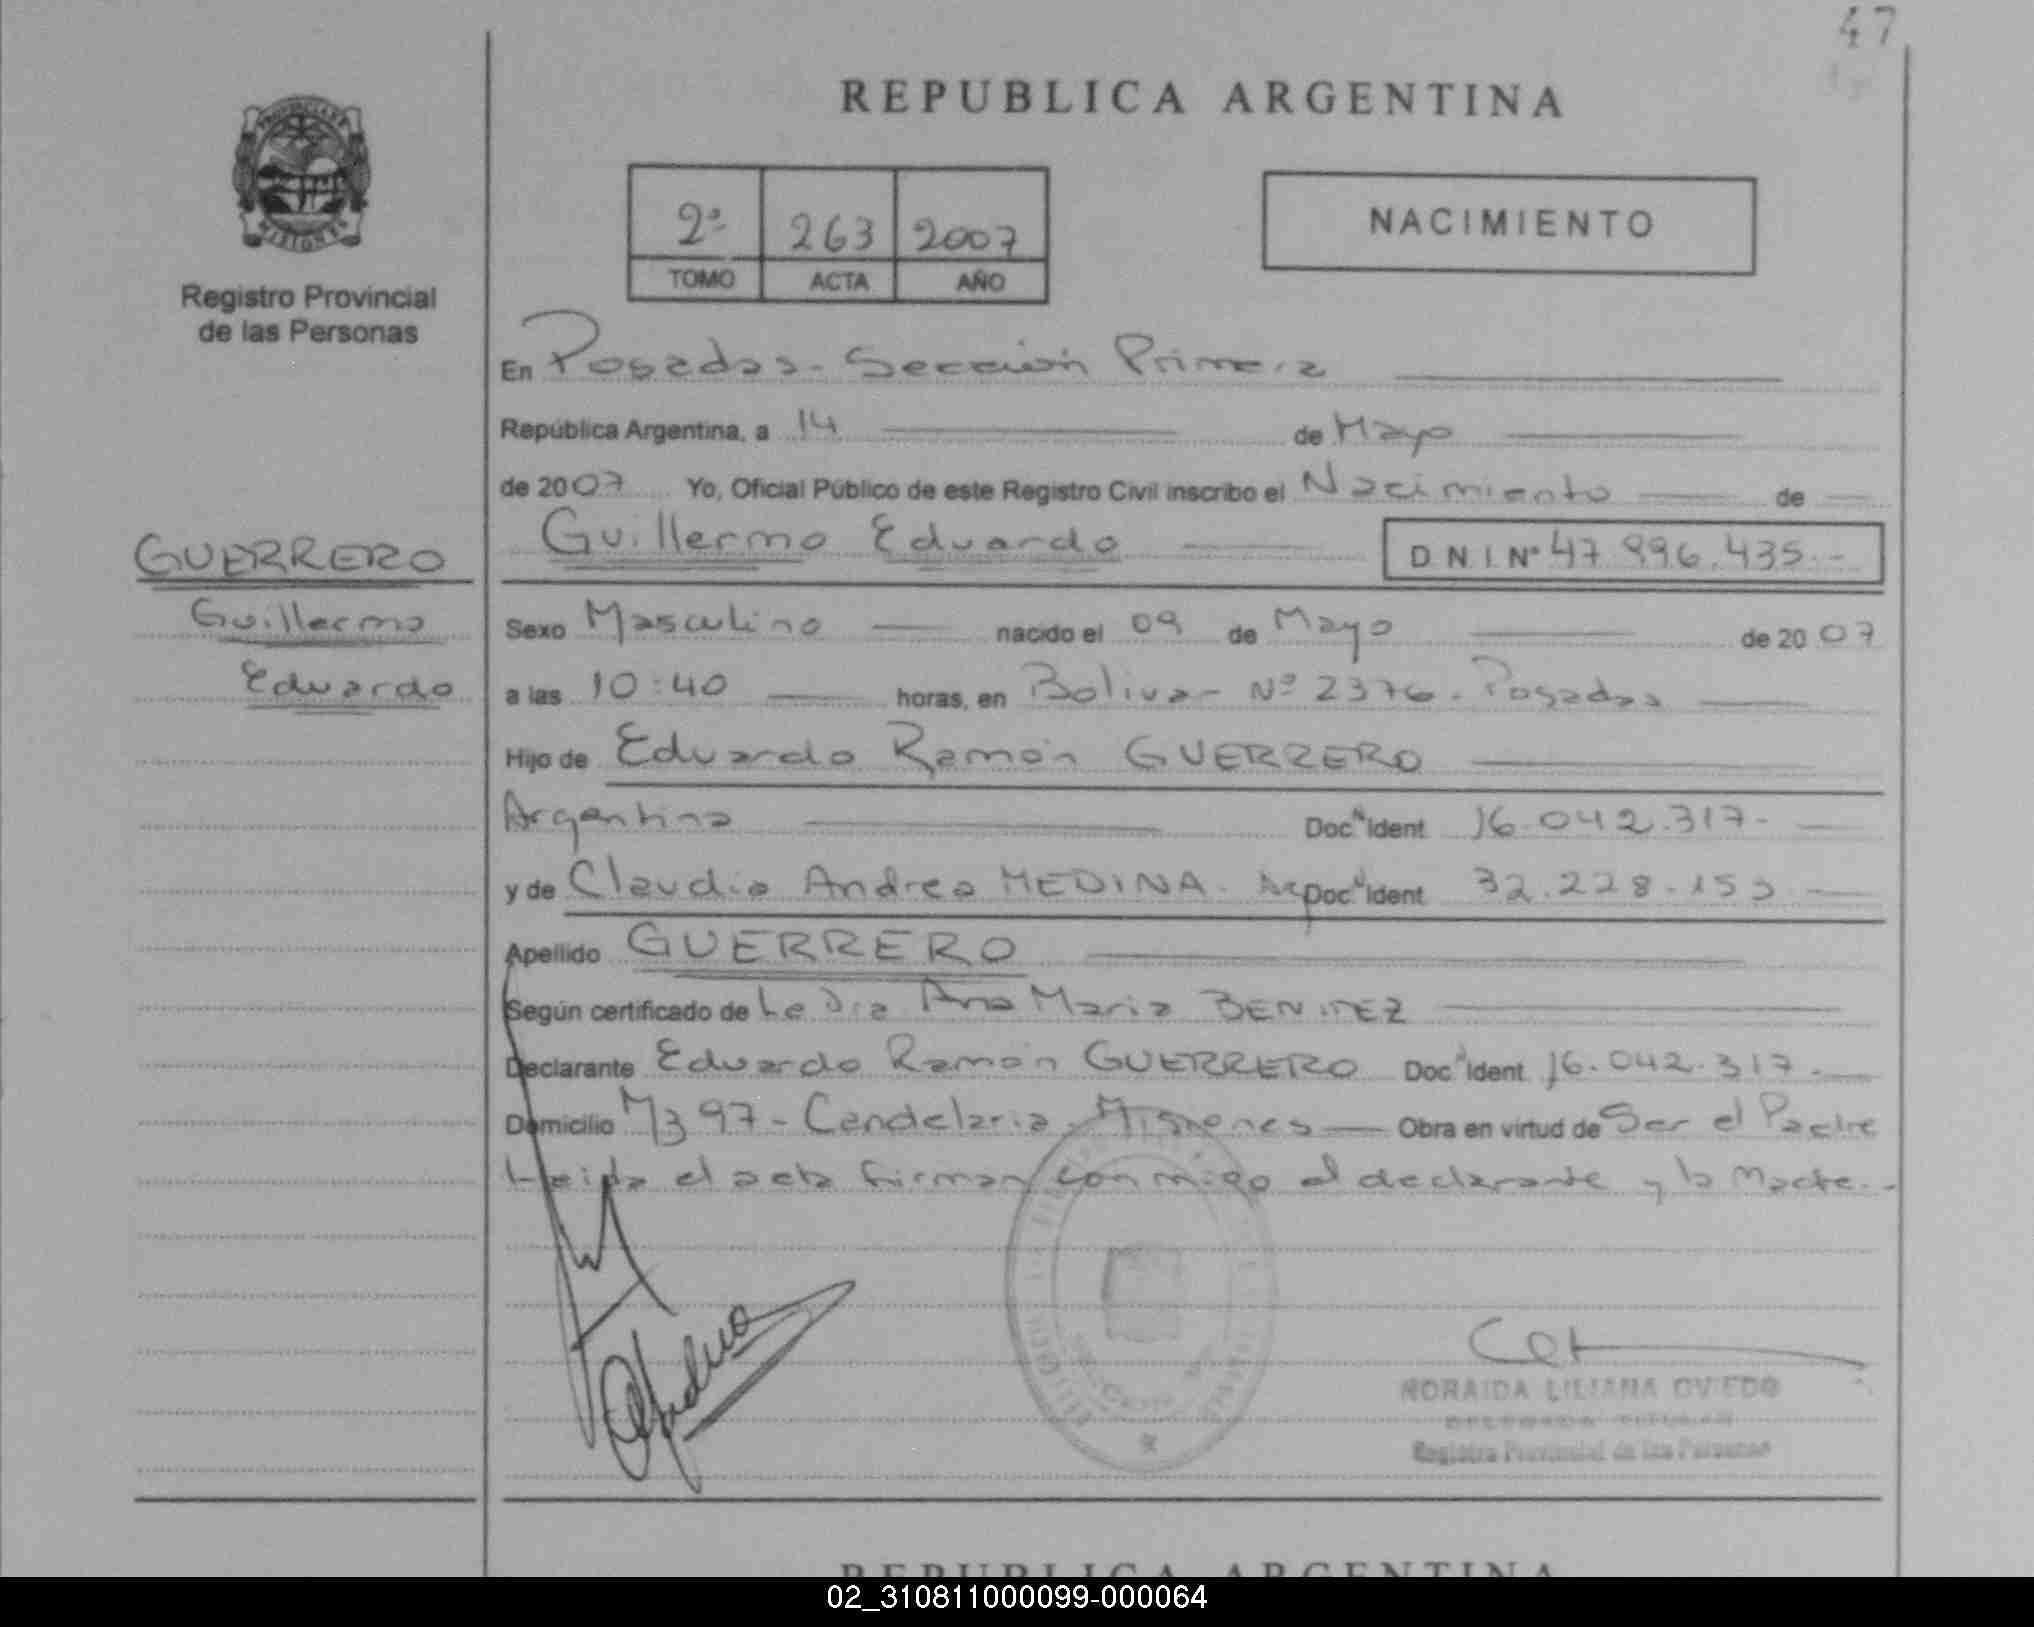 47
REPUBLICA ARGENTINA
PROVINCIA DE
MISIONES
Registro Provincial
de las Personas
2º 263 2007
TOMO ACTA AÑO
NACIMIENTO
En Posadas - Sección Primera
República Argentina, a 14 de Mayo
de 2007 Yo, Oficial Público de este Registro Civil inscribo el Nacimiento de
GUERRERO
Guillermo
Eduardo
Guillermo Eduardo D.N.I. Nº 47.996.435.-
Sexo Masculino nacido el 09 de Mayo de 2007
a las 10:40 horas, en Bolivar Nº 2376 - Posadas
Hijo de Eduardo Ramón GUERRERO
Argentino Doc N Ident 16.042.317-
y de Claudia Andrea MEDINA - Doc N Ident 32.228.153
Apellido GUERRERO
Según certificado de La Dra Ana Maria BENITEZ
Declarante Eduardo Ramón GUERRERO Doc N Ident 16.042.317.
Domicilio 97 - Candelaria - Misiones Obra en virtud de Ser el Padre
Leida el acta firman conmigo el declarante y la Madre.-
NORAIDA LILIANA OVIEDO
DELEGADA TITULAR
Registro Provincial de las Personas
REPUBLICA ARGENTINA
02_310811000099-000064